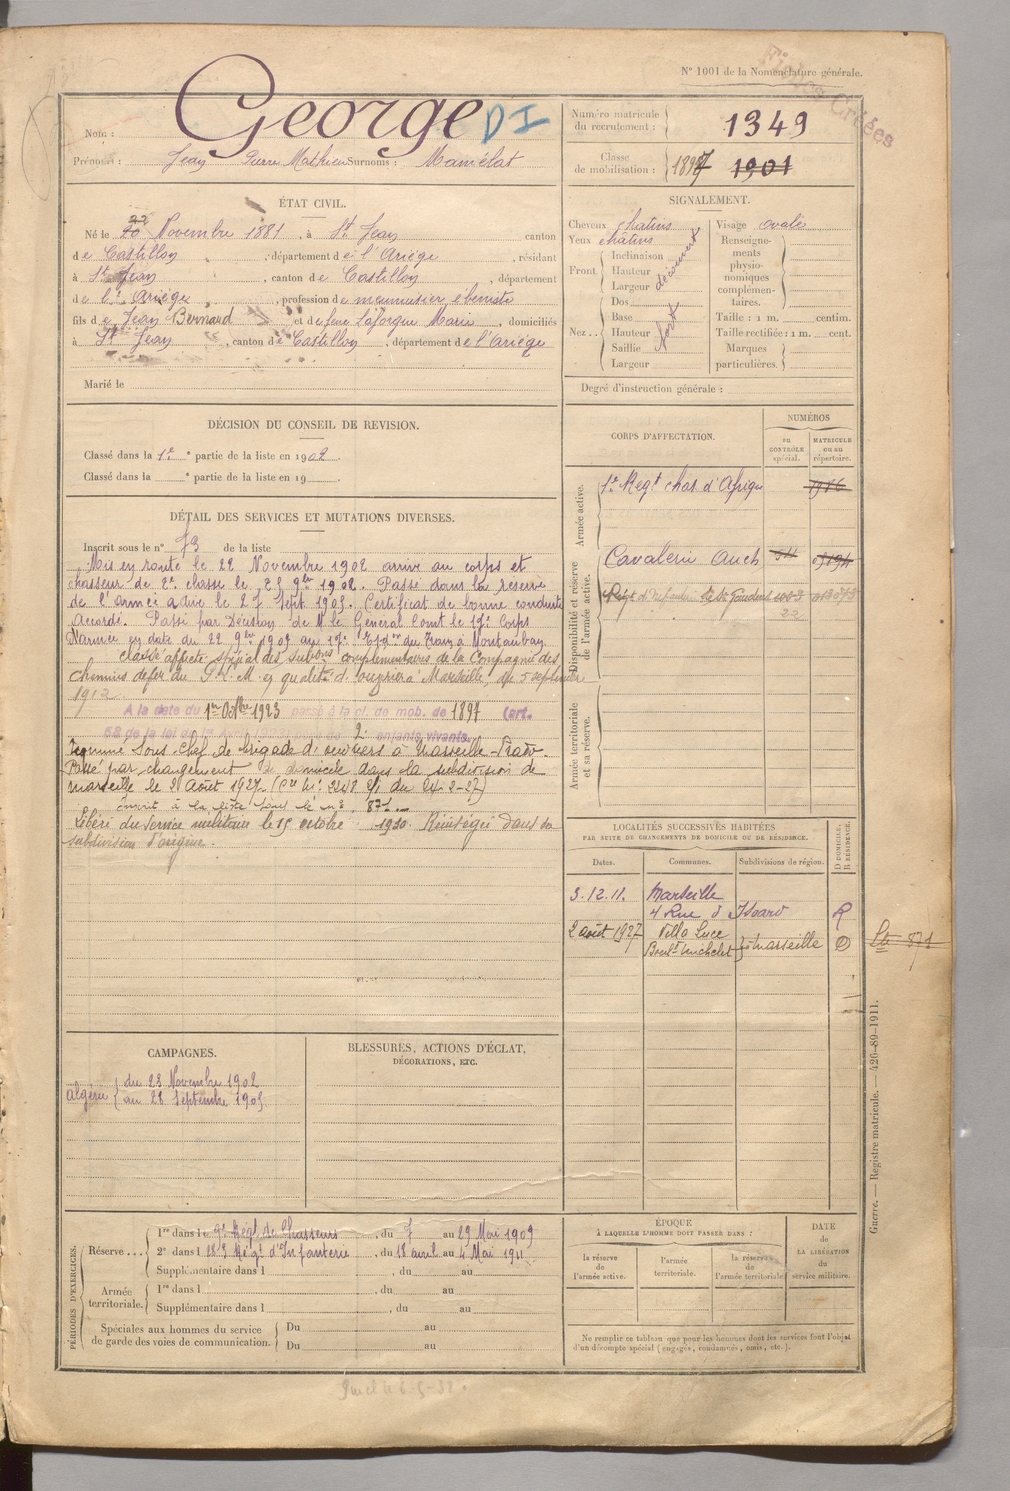 N° 1001 de la Nomenclature générale.
Fiches Créées
Nom : George DI
Prénoms : Jean Pierre Mathieu Surnoms : Mamélat
Numéro matricule du recrutement : 1349
Classe de mobilisation : 1897 1901
ÉTAT CIVIL.
Né le 22 Novembre 1881, à St Jean canton
de Castillon, département de l'Ariège, résidant
à St Jean, canton de Castillon, département
de l'Ariège, profession de menuisier ébéniste
fils de Jean Bernard et de feue Laforgue Marie, domiciliés
à St Jean, canton de Castillon, département de l'Ariège
Marié le
SIGNALEMENT.
Cheveux châtins Visage ovale
Yeux châtins
Front Inclinaison Hauteur Largeur découvert
Nez Dos Base Hauteur Saillie Largeur fort
Renseignements physionomiques complémentaires.
Taille : 1 m. centim.
Taille rectifiée : 1 m. cent.
Marques particulières.
Degré d'instruction générale :
DÉCISION DU CONSEIL DE REVISION.
Classé dans la 1re partie de la liste en 1902.
Classé dans la e partie de la liste en 19
DÉTAIL DES SERVICES ET MUTATIONS DIVERSES.
Inscrit sous le n° 73 de la liste
Mis en route le 22 Novembre 1902 arrivé au corps et
chasseur de 2e classe le 23 9bre 1902. Passé dans la réserve
de l'armée active le 27 Sept 1905. Certificat de bonne conduite
Accordé. Passé par Décision de M. le Général Comt le 17e Corps
D'armée en date du 22 9bre 1909 au 17e Esc.on du Train à Montauban
Classé affecté spécial des subdons complémentaires de la Compagnie des
chemins de fer du P.L.M. en qualité d'ouvrier à Marseille, du 5 septembre
1912
A la date du 1er Octbre 1923 passé à la cl. de mob. de 1897 (art.
58 de la loi du 1er Avril 1923 2 enfants vivants.
Nommé Sous chef de brigade d'ouvriers à Marseille-Prado.
Passé par changement de domicile dans la subdivision de
Marseille le 2 Août 1927.
Inscrit à la liste sous le n° 871
Libéré du service militaire le 15 octobre 1930 Réintégré dans sa
subdivision d'origine.
CORPS D'AFFECTATION.
NUMÉROS
au CONTRÔLE spécial.
MATRICULE ou au répertoire.
Armée active.
1er Régt chas. d'Afrique 1986
Disponibilité et réserve de l'armée active.
Cavalerie Auch
Régt d'Infanterie de St Gaudens
Armée territoriale et sa réserve.
LOCALITÉS SUCCESSIVES HABITÉES
PAR SUITE DE CHANGEMENTS DE DOMICILE OU DE RÉSIDENCE.
Dates. Communes. Subdivisions de région. D DOMICILE. R RÉSIDENCE.
3.12.11. Marseille
4 Rue d'Isoard R
2 août 1927 Villa Luce
Boult Michelet à Marseille D
Guerre. — Registre matricule. — 426-89-1911.
CAMPAGNES.
Algérie du 23 Novembre 1902
au 26 Septembre 1905
BLESSURES, ACTIONS D'ÉCLAT,
DÉCORATIONS, ETC.
PÉRIODES D'EXERCICES.
Réserve... 1re dans le 9e Régt de Chasseurs, du 7 au 29 Mai 1909
2e dans l 283 Régt d'Infanterie, du 18 avril au 4 Mai 1911
Supplémentaire dans l , du au
Armée territoriale. 1re dans l , du au
Supplémentaire dans l , du au
Spéciales aux hommes du service de garde des voies de communication. Du au
Du au
ÉPOQUE
À LAQUELLE L'HOMME DOIT PASSER DANS :
la réserve de l'armée active.
l'armée territoriale.
la réserve de l'armée territoriale
DATE de LA LIBÉRATION du service militaire.
Ne remplir ce tableau que pour les hommes dont les services font l'objet
d'un décompte spécial (engagés, condamnés, omis, etc.).